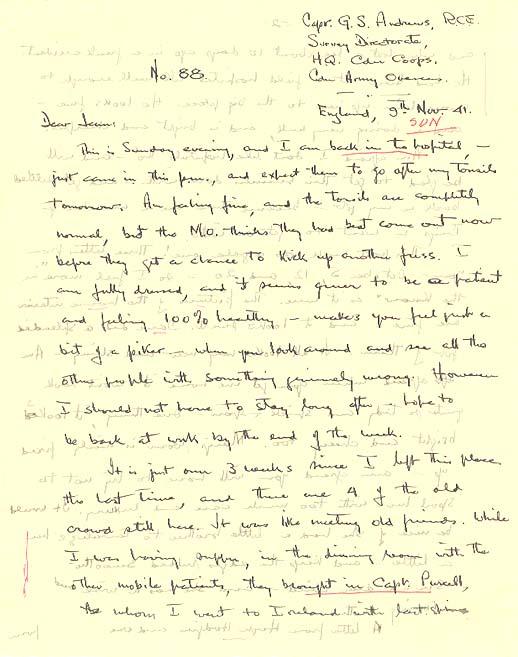 Capt. G. S. Andrews, RCE.
Survey Directorate,
HQ. Cdn Corps.
Cdn Army Overseas.
No. 88.
England, 9th Nov. 41.
SUN
Dear Jean:
This is Sunday evening, and I am back in the hospital, —
just came in this p.m., and expect them to go after my tonsils
tomorrow. Am feeling fine, and the tonsils are completely
normal, but the M.O. thinks they had best come out now
before they get a chance to kick up another fuss. I
am fully dressed, and it seems queer to be a patient
and feeling 100% healthy — makes you feel just a
bit of a piker — when you look around and see all the
other people with something genuinely wrong. However
I should not have to stay long after, & hope to
be back at work by the end of the week.
It is just over 3 weeks since I left this place
the last time, and there are 4 of the old
crowd still here. It was like meeting old friends. While
I was having supper, in the dining room with the
other mobile patients, they brought in Capt. Purcell,
whom I went to Ireland with last